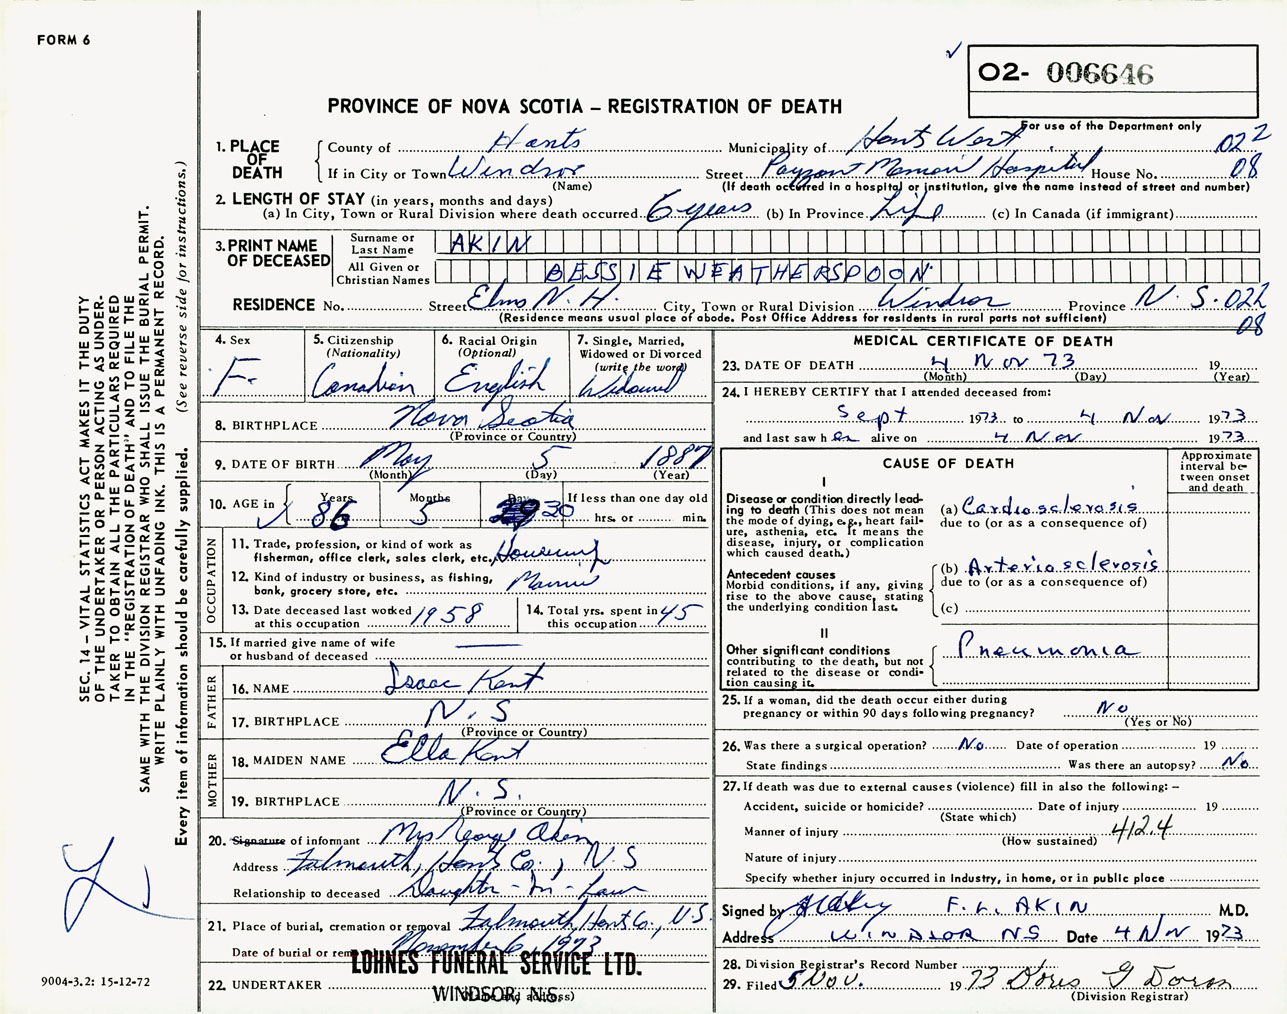 FORM 6
✓
O2- 006646
For use of the Department only
PROVINCE OF NOVA SCOTIA – REGISTRATION OF DEATH
SEC. 14 – VITAL STATISTICS ACT MAKES IT THE DUTY
OF THE UNDERTAKER OR PERSON ACTING AS UNDER-
TAKER TO OBTAIN ALL THE PARTICULARS REQUIRED
IN THE "REGISTRATION OF DEATH" AND TO FILE THE
SAME WITH THE DIVISION REGISTRAR WHO SHALL ISSUE THE BURIAL PERMIT.
WRITE PLAINLY WITH UNFADING INK. THIS IS A PERMANENT RECORD.
Every item of information should be carefully supplied. (See reverse side for instructions.)
9004-3.2: 15-12-72
1. PLACE OF DEATH
County of Hants Municipality of Hants West 022
If in City or Town Windsor Street Payzant Memorial Hospital House No. 08
(Name) (If death occurred in a hospital or institution, give the name instead of street and number)
2. LENGTH OF STAY (in years, months and days)
(a) In City, Town or Rural Division where death occurred 6 years (b) In Province Life (c) In Canada (if immigrant)
3. PRINT NAME OF DECEASED
Surname or Last Name AKIN
All Given or Christian Names BESSIE WEATHERSPOON
RESIDENCE No. Street Elms N. H. City, Town or Rural Division Windsor Province N. S. 022
(Residence means usual place of abode. Post Office Address for residents in rural parts not sufficient) 08
4. Sex F.
5. Citizenship (Nationality) Canadian
6. Racial Origin (Optional) English
7. Single, Married, Widowed or Divorced (write the word) Widowed
8. BIRTHPLACE Nova Scotia
(Province or Country)
9. DATE OF BIRTH May 5 1887
(Month) (Day) (Year)
10. AGE in ✓ Years 86 Months 5 Days 30 If less than one day old
hrs. or min.
OCCUPATION
11. Trade, profession, or kind of work as
fisherman, office clerk, sales clerk, etc.
12. Kind of industry or business, as fishing,
bank, grocery store, etc.
13. Date deceased last worked at this occupation 1958
14. Total yrs. spent in this occupation 45
15. If married give name of wife
or husband of deceased —
FATHER
16. NAME Isaac Kent
17. BIRTHPLACE N. S
(Province or Country)
MOTHER
18. MAIDEN NAME Ella Kent
19. BIRTHPLACE N. S.
(Province or Country)
20. Signature of informant Mrs George Aken
Address Falmouth, Hants Co., N. S
Relationship to deceased Daughter-in-Law
21. Place of burial, cremation or removal Falmouth, Hants Co., N.S.
Date of burial or rem November 6, 1973
LOHNES FUNERAL SERVICE LTD.
22. UNDERTAKER WINDSOR, N.S.
(Name and address)
MEDICAL CERTIFICATE OF DEATH
23. DATE OF DEATH 4 Nov 73 19
(Month) (Day) (Year)
24. I HEREBY CERTIFY that I attended deceased from:
Sept 1973 to 4 Nov 1973
and last saw h er alive on 4 Nov 1973
CAUSE OF DEATH
Approximate interval be-
tween onset and death
I
Disease or condition directly lead-
ing to death (This does not mean
the mode of dying, e.g., heart fail-
ure, asthenia, etc. It means the
disease, injury, or complication
which caused death.)
(a) Cardiosclerosis
due to (or as a consequence of)
Antecedent causes
Morbid conditions, if any, giving
rise to the above cause, stating
the underlying condition last.
(b) Arteriosclerosis
due to (or as a consequence of)
(c)
II
Other significant conditions
contributing to the death, but not
related to the disease or condi-
tion causing it.
Pneumonia
25. If a woman, did the death occur either during
pregnancy or within 90 days following pregnancy? No
(Yes or No)
26. Was there a surgical operation? No Date of operation 19
State findings Was there an autopsy? No
27. If death was due to external causes (violence) fill in also the following: –
Accident, suicide or homicide? Date of injury 19
(State which)
Manner of injury 412.4
(How sustained)
Nature of injury
Specify whether injury occurred in industry, in home, or in public place
Signed by F. L. AKIN M.D.
Address WINDSOR NS Date 4 Nov 1973
28. Division Registrar's Record Number
29. Filed 5 Nov. 1973 Doris G Doran
(Division Registrar)